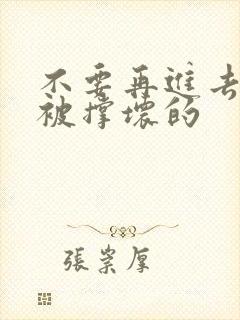 不要再進去
被撐壞的
張崇厚